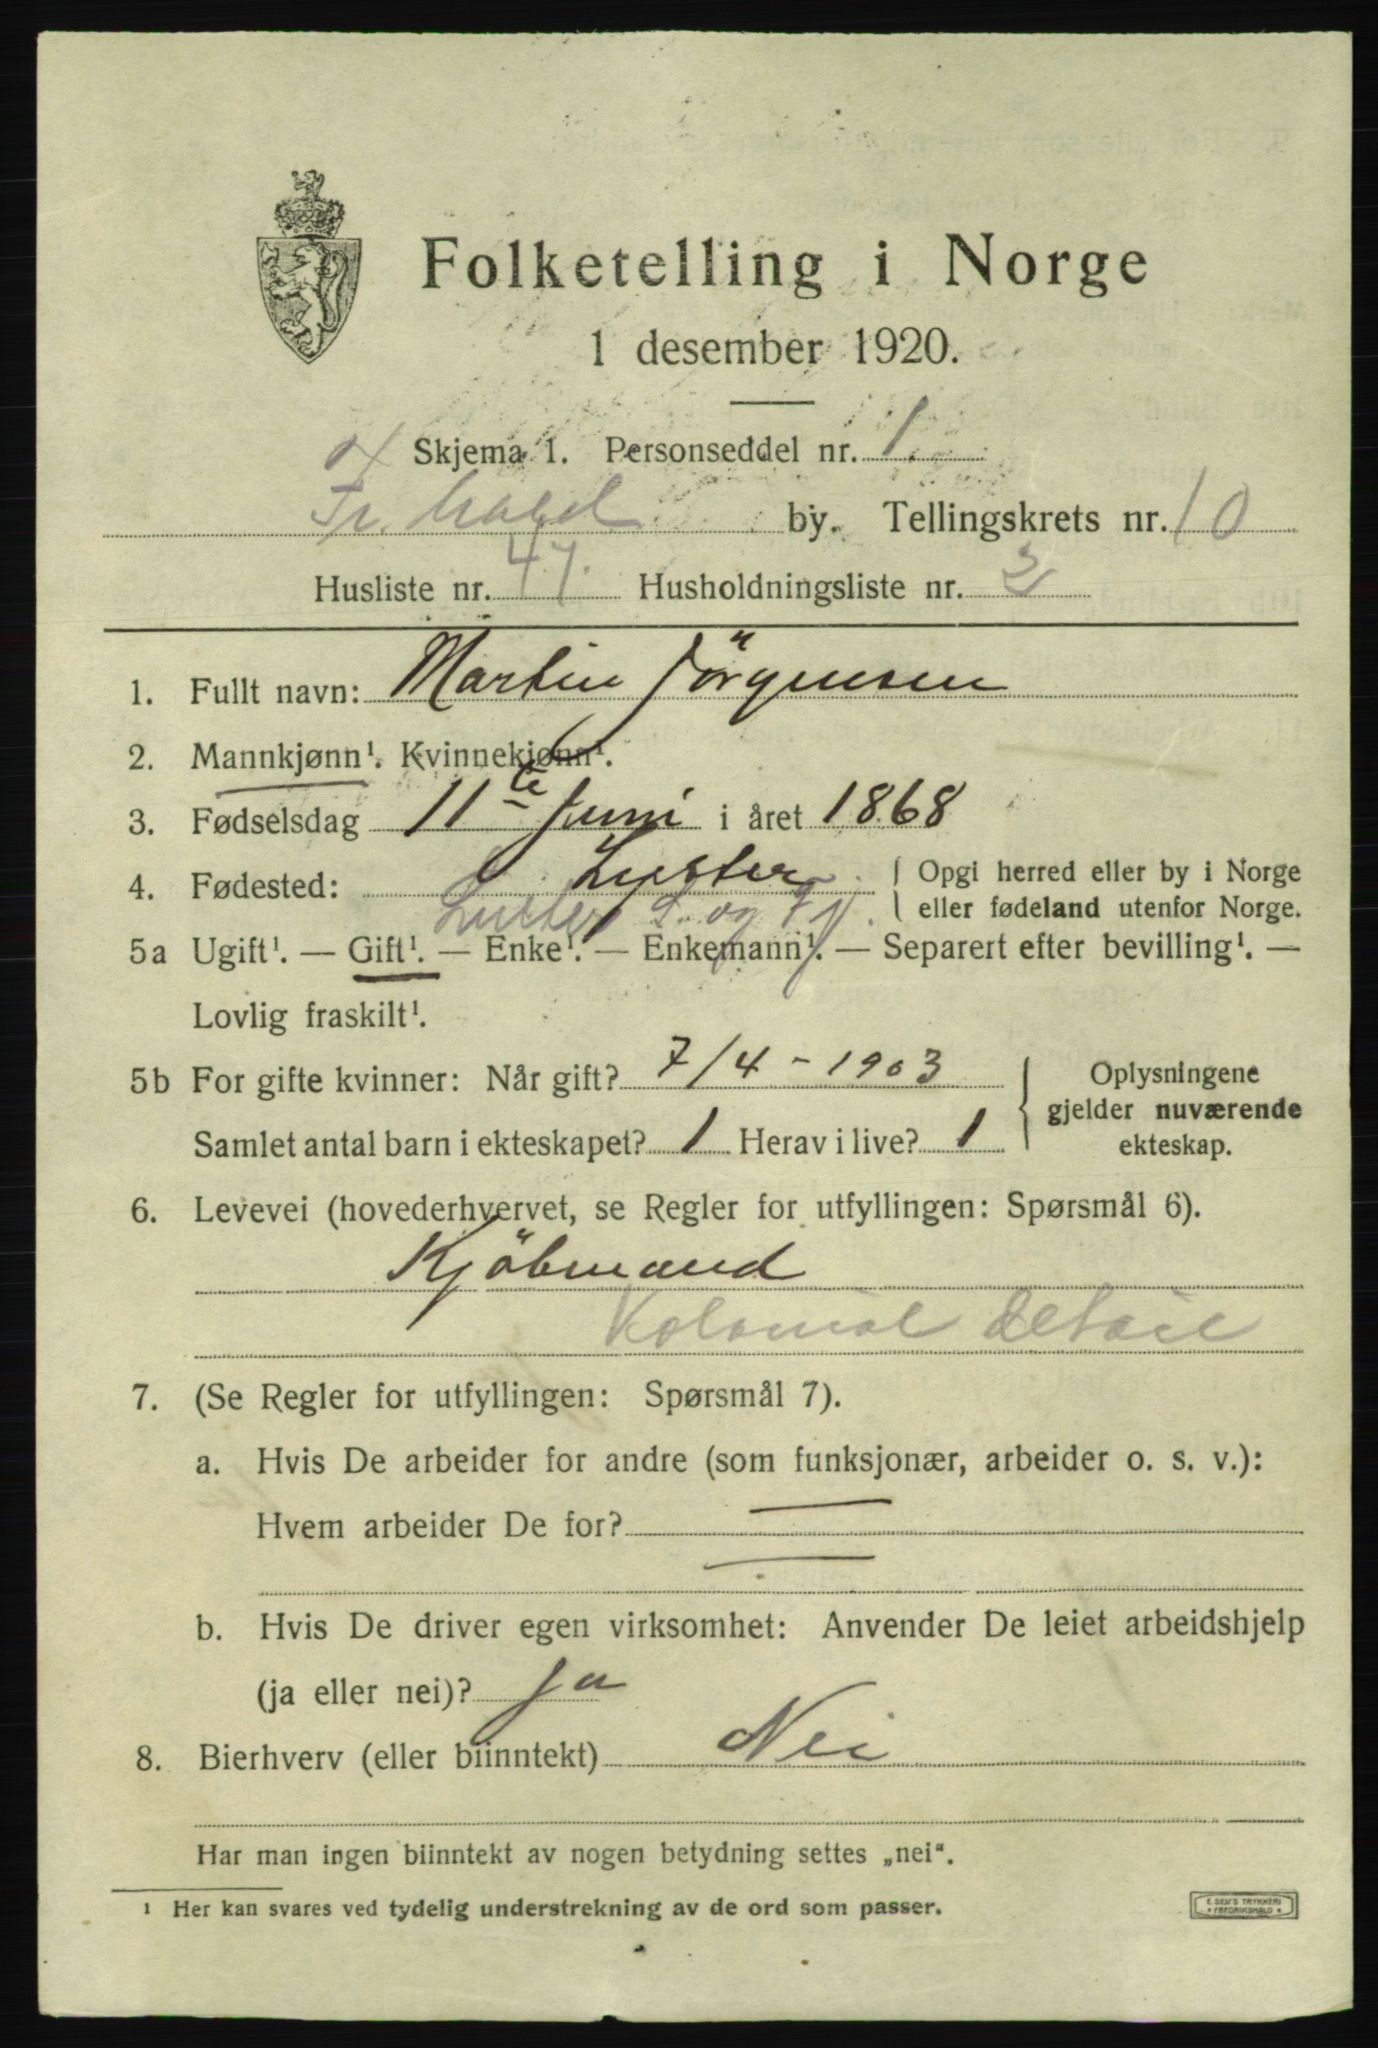 Folketelling i Norge
1 desember 1920.
Skjema 1. Personseddel nr. 1.
Fr.hald by. Tellingskrets nr. 10
Husliste nr. 47. Husholdningsliste nr. 3
1. Fullt navn: Martin Jörgensen
2. Mannkjønn¹. Kvinnekjønn¹.
3. Fødselsdag 11te Juni i året 1868
4. Fødested: Lyster { Opgi herred eller by i Norge
Luster S. og Fj. eller fødeland utenfor Norge.
5a Ugift¹. — Gift¹. — Enke¹. — Enkemann¹. — Separert efter bevilling¹. —
Lovlig fraskilt¹.
5b For gifte kvinner: Når gift? 7/4 - 1903 } Oplysningene
gjelder nuværende
Samlet antal barn i ekteskapet? 1 Herav i live? 1 ekteskap.
6. Levevei (hovederhvervet, se Regler for utfyllingen: Spørsmål 6).
Kjöbmand
Kolonial detail
7. (Se Regler for utfyllingen: Spørsmål 7).
a. Hvis De arbeider for andre (som funksjonær, arbeider o. s. v.):
Hvem arbeider De for?
b. Hvis De driver egen virksomhet: Anvender De leiet arbeidshjelp
(ja eller nei)? Ja
8. Bierhverv (eller biinntekt) Nei
Har man ingen biinntekt av nogen betydning settes „nei“.
¹ Her kan svares ved tydelig understrekning av de ord som passer.
E. SEM'S TRYKKERI
FREDRIKSHALD